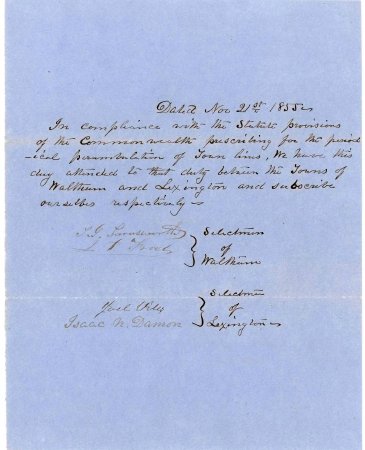 Dated Nov 21st 1855
In compliance with the Statute provisions
of the Commonwealth prescribing for the period
-ical perambulation of Town lines, We have this
day attended to that duty between the Towns of
Waltham and Lexington and subscribe
ourselves respectively
Selectmen
of
Waltham
Selectmen
of
Lexington
Isaac N. Damon